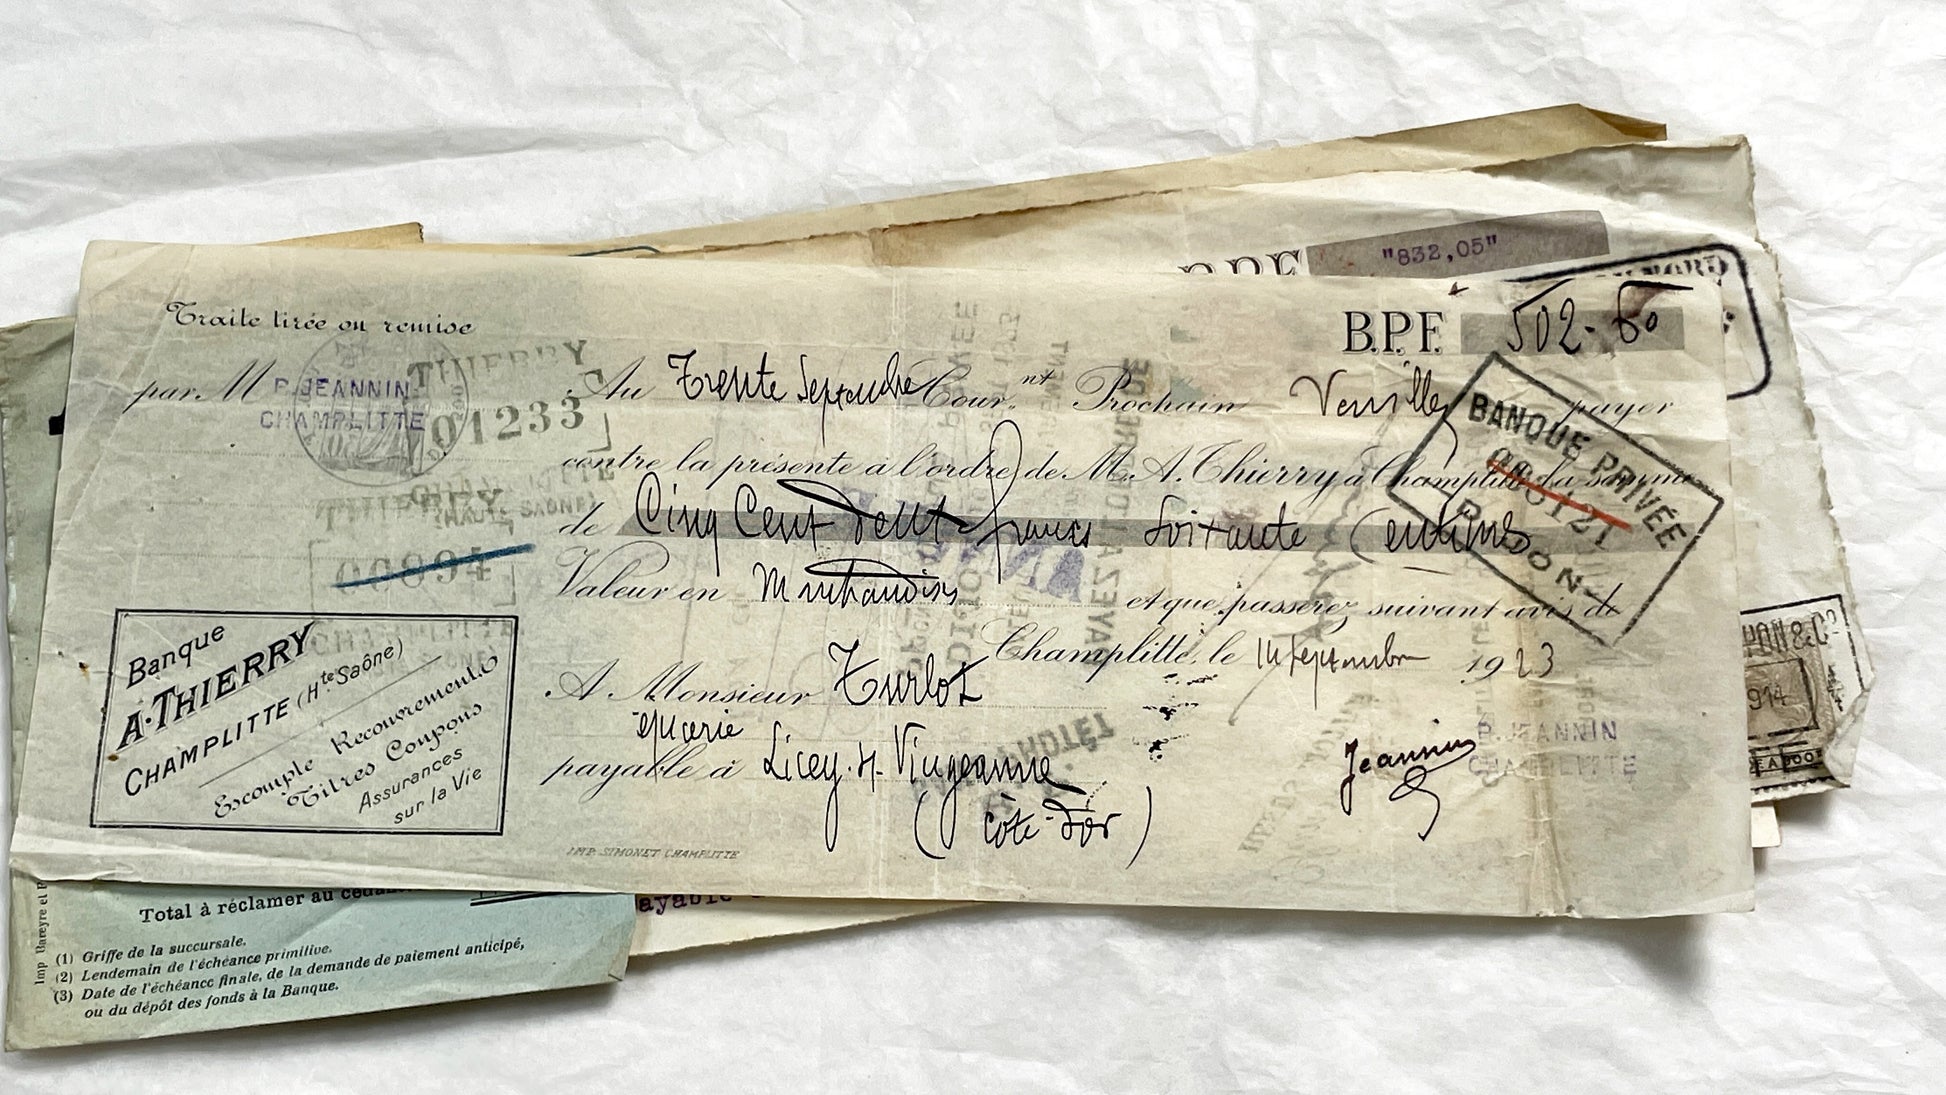 "832,05"
Traite tirée ou remise
B.P.F. 502-60
par M P. JEANNIN
CHAMPLITTE
THIERRY
01233
Au Trente Septembre Cour.nt Prochain Veuillez payer
contre la présente à l'ordre de M. A. Thierry à Champlitte la somme
de Cinq Cent deux francs Soixante Centimes
Valeur en Marchandises et que passerez suivant avis de
Champlitte, le 14 Septembre 1923
A Monsieur Turlot
épicerie
payable à Licey s/ Vingeanne
(Côte-d'Or)
Jeannin
P. JEANNIN
CHAMPLITTE
BANQUE PRIVÉE
00121
DIJON
THIERRY
00894
CHAMPLITTE
Banque
A. THIERRY
CHAMPLITTE (Hte Saône)
Escompte Recouvrements
Titres Coupons
Assurances
sur la Vie
IMP. SIMONET CHAMPLITTE
1914
Total à réclamer au
(1) Griffe de la succursale.
(2) Lendemain de l'échéance primitive.
(3) Date de l'échéance finale, de la demande de paiement anticipé,
ou du dépôt des fonds à la Banque.